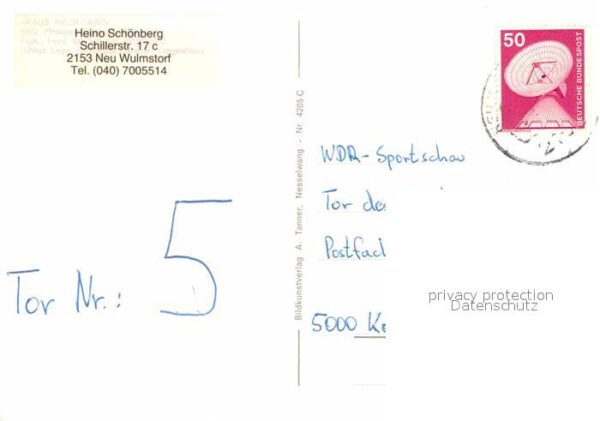 Heino Schönberg
Schillerstr. 17 c
2153 Neu Wulmstorf
Tel. (040) 7005514
Tor Nr.: 5
Bildkunstverlag A. Tanner, Nesselwang - Nr. 4205 C
50
DEUTSCHE BUNDESPOST
WDR-Sportschau
Tor de
Postfach
5000 K
privacy protection
Datenschutz